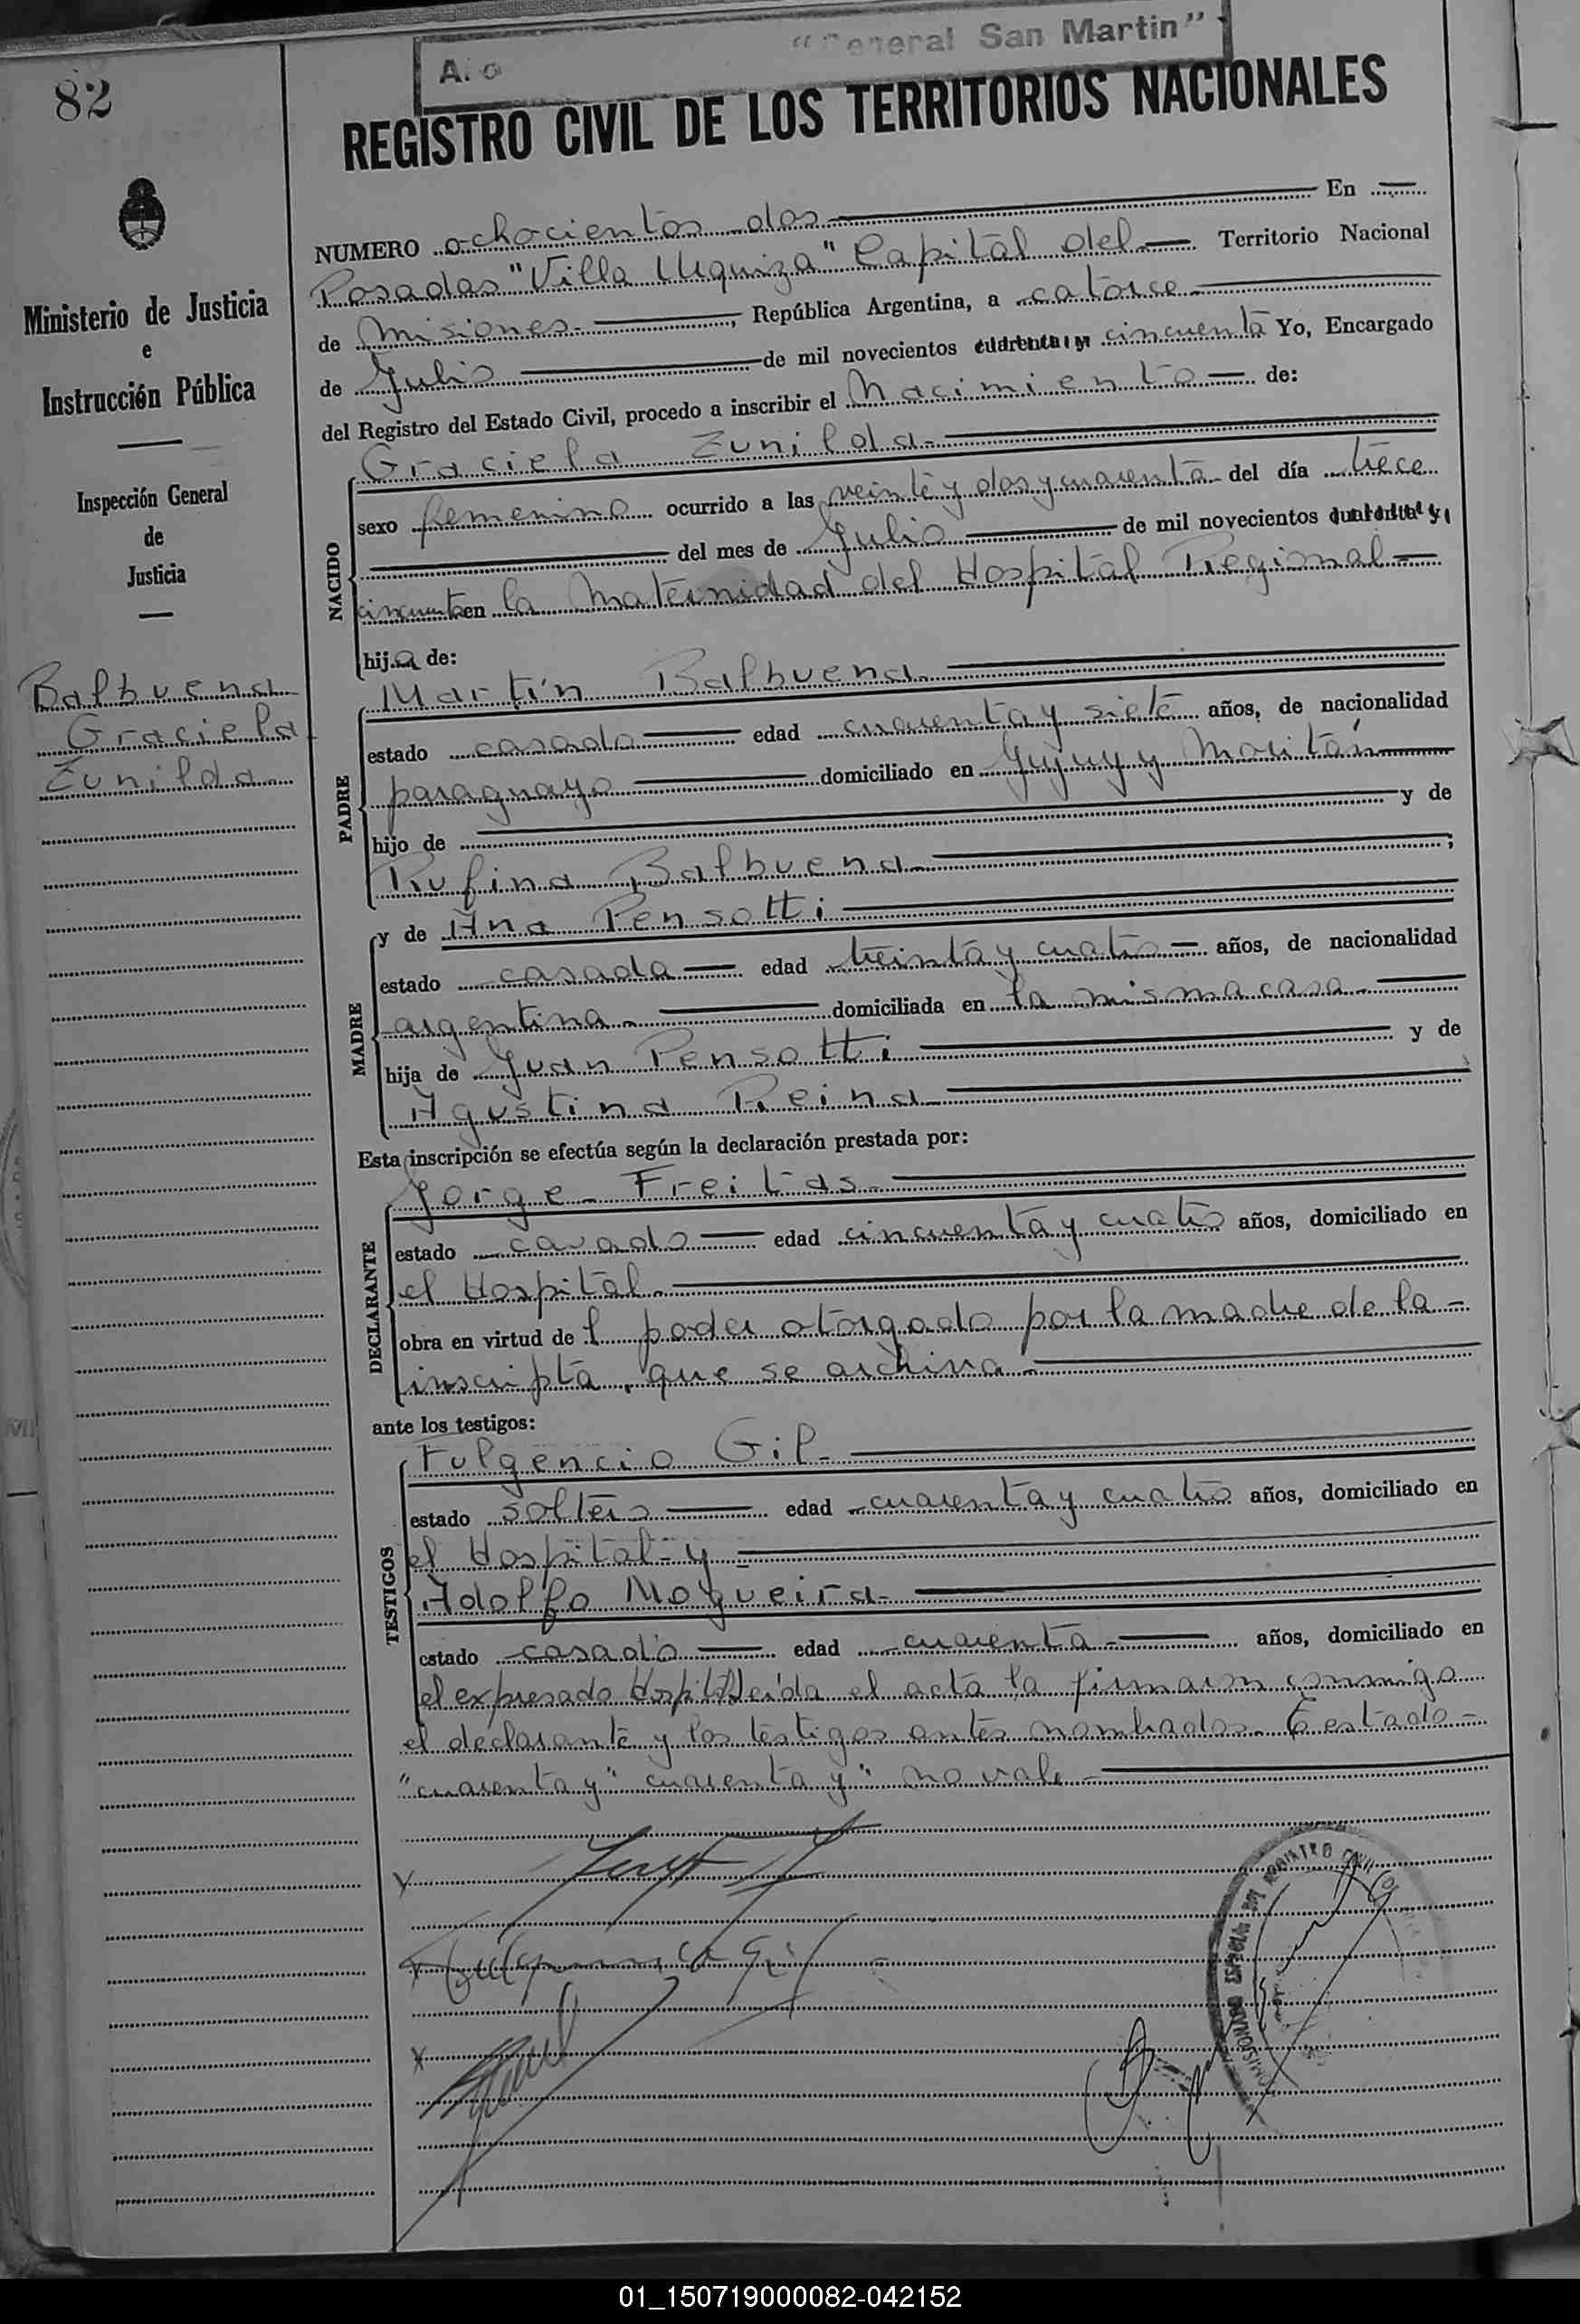 82
"General San Martin"
REGISTRO CIVIL DE LOS TERRITORIOS NACIONALES
Ministerio de Justicia
e
Instrucción Pública
Inspección General
de
Justicia
Balbuena
Graciela
Zunilda
NUMERO ochocientos dos En
Posadas "Villa Urquiza" Capital del Territorio Nacional
de Misiones República Argentina, a catorce
de Julio de mil novecientos cuarenta y cincuenta Yo, Encargado
del Registro del Estado Civil, procedo a inscribir el Nacimiento de:
NACIDO
Graciela Zunilda
sexo femenino ocurrido a las veinte y dos y cuarenta del día trece
del mes de Julio de mil novecientos cuarenta y
cincuenta en la Maternidad del Hospital Regional
hija de:
PADRE
Martín Balbuena
estado casado edad cuarenta y siete años, de nacionalidad
paraguayo domiciliado en Jujuy y Moritán
hijo de y de
Rufina Balbuena ;
MADRE
y de Ana Pensotti
estado casada edad treinta y cuatro años, de nacionalidad
argentina domiciliada en la misma casa
hija de Juan Pensotti y de
Agustina Reina
Esta inscripción se efectúa según la declaración prestada por:
DECLARANTE
Jorge Freitas
estado casado edad cincuenta y cuatro años, domiciliado en
el Hospital
obra en virtud del poder otorgado por la madre de la
inscripta, que se archiva
ante los testigos:
TESTIGOS
Fulgencio Gil
estado soltero edad cuarenta y cuatro años, domiciliado en
el Hospital y
Adolfo Nogueira
estado casado edad cuarenta años, domiciliado en
el expresado Hospital Leída el acta la firmaron conmigo
el declarante y los testigos antes nombrados. Testado
"cuarenta y" cuarenta y" no vale
01_150719000082-042152